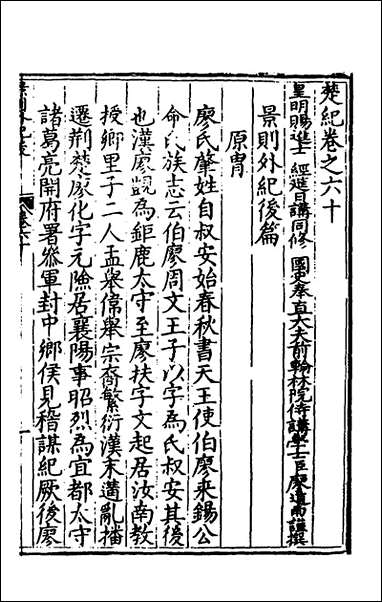 楚紀卷之六十
皇明賜進士 經筵日講同修 國史奉直大夫前翰林院侍講學士臣廖道南謹撰
景則外紀後篇
原胄
廖氏肇姓自叔安始春秋書天王使伯廖來錫公
命氏族志云伯廖周文王子以字為氏叔安其後
也漢廖覬為鉅鹿太守至廖扶字文起居汝南教
授鄉里子二人孟舉偉舉宗裔繁衍漢末遘亂播
遷荆楚廖化字元險居襄陽事昭烈為宜都太守
諸葛亮開府署叅軍封中鄉侯見稽謀紀厥後廖